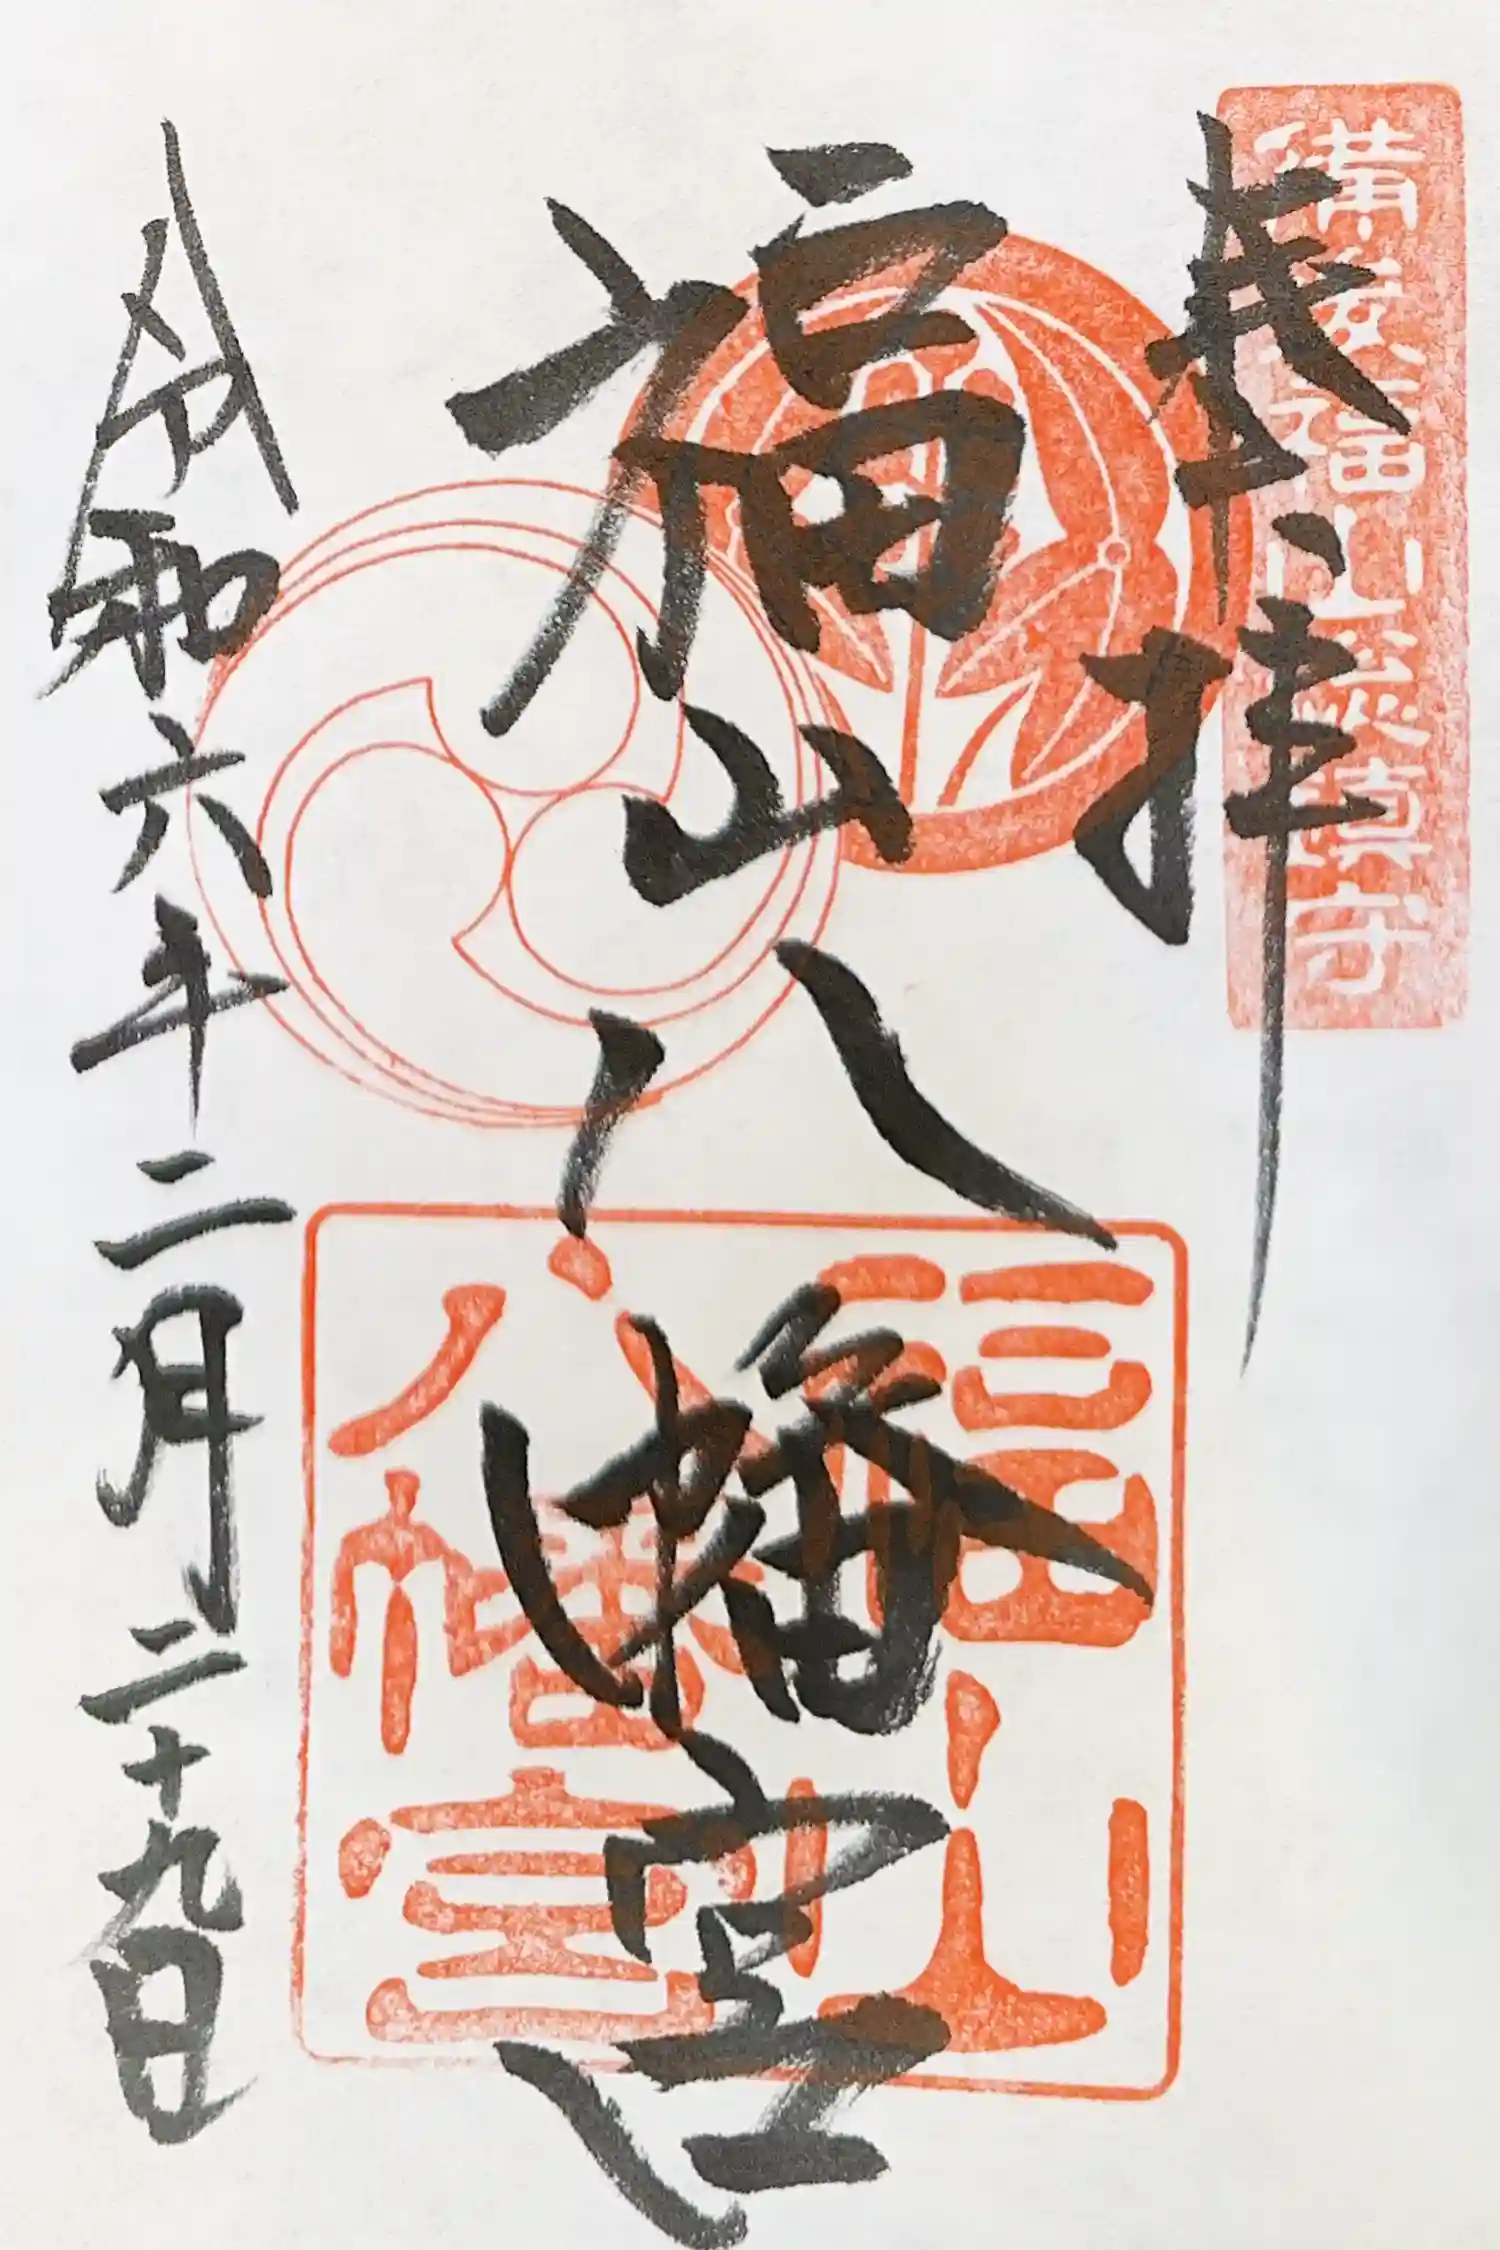 備後福山総鎮守
奉拝
福山八幡宮
福山八幡宮
令和六年二月二十九日